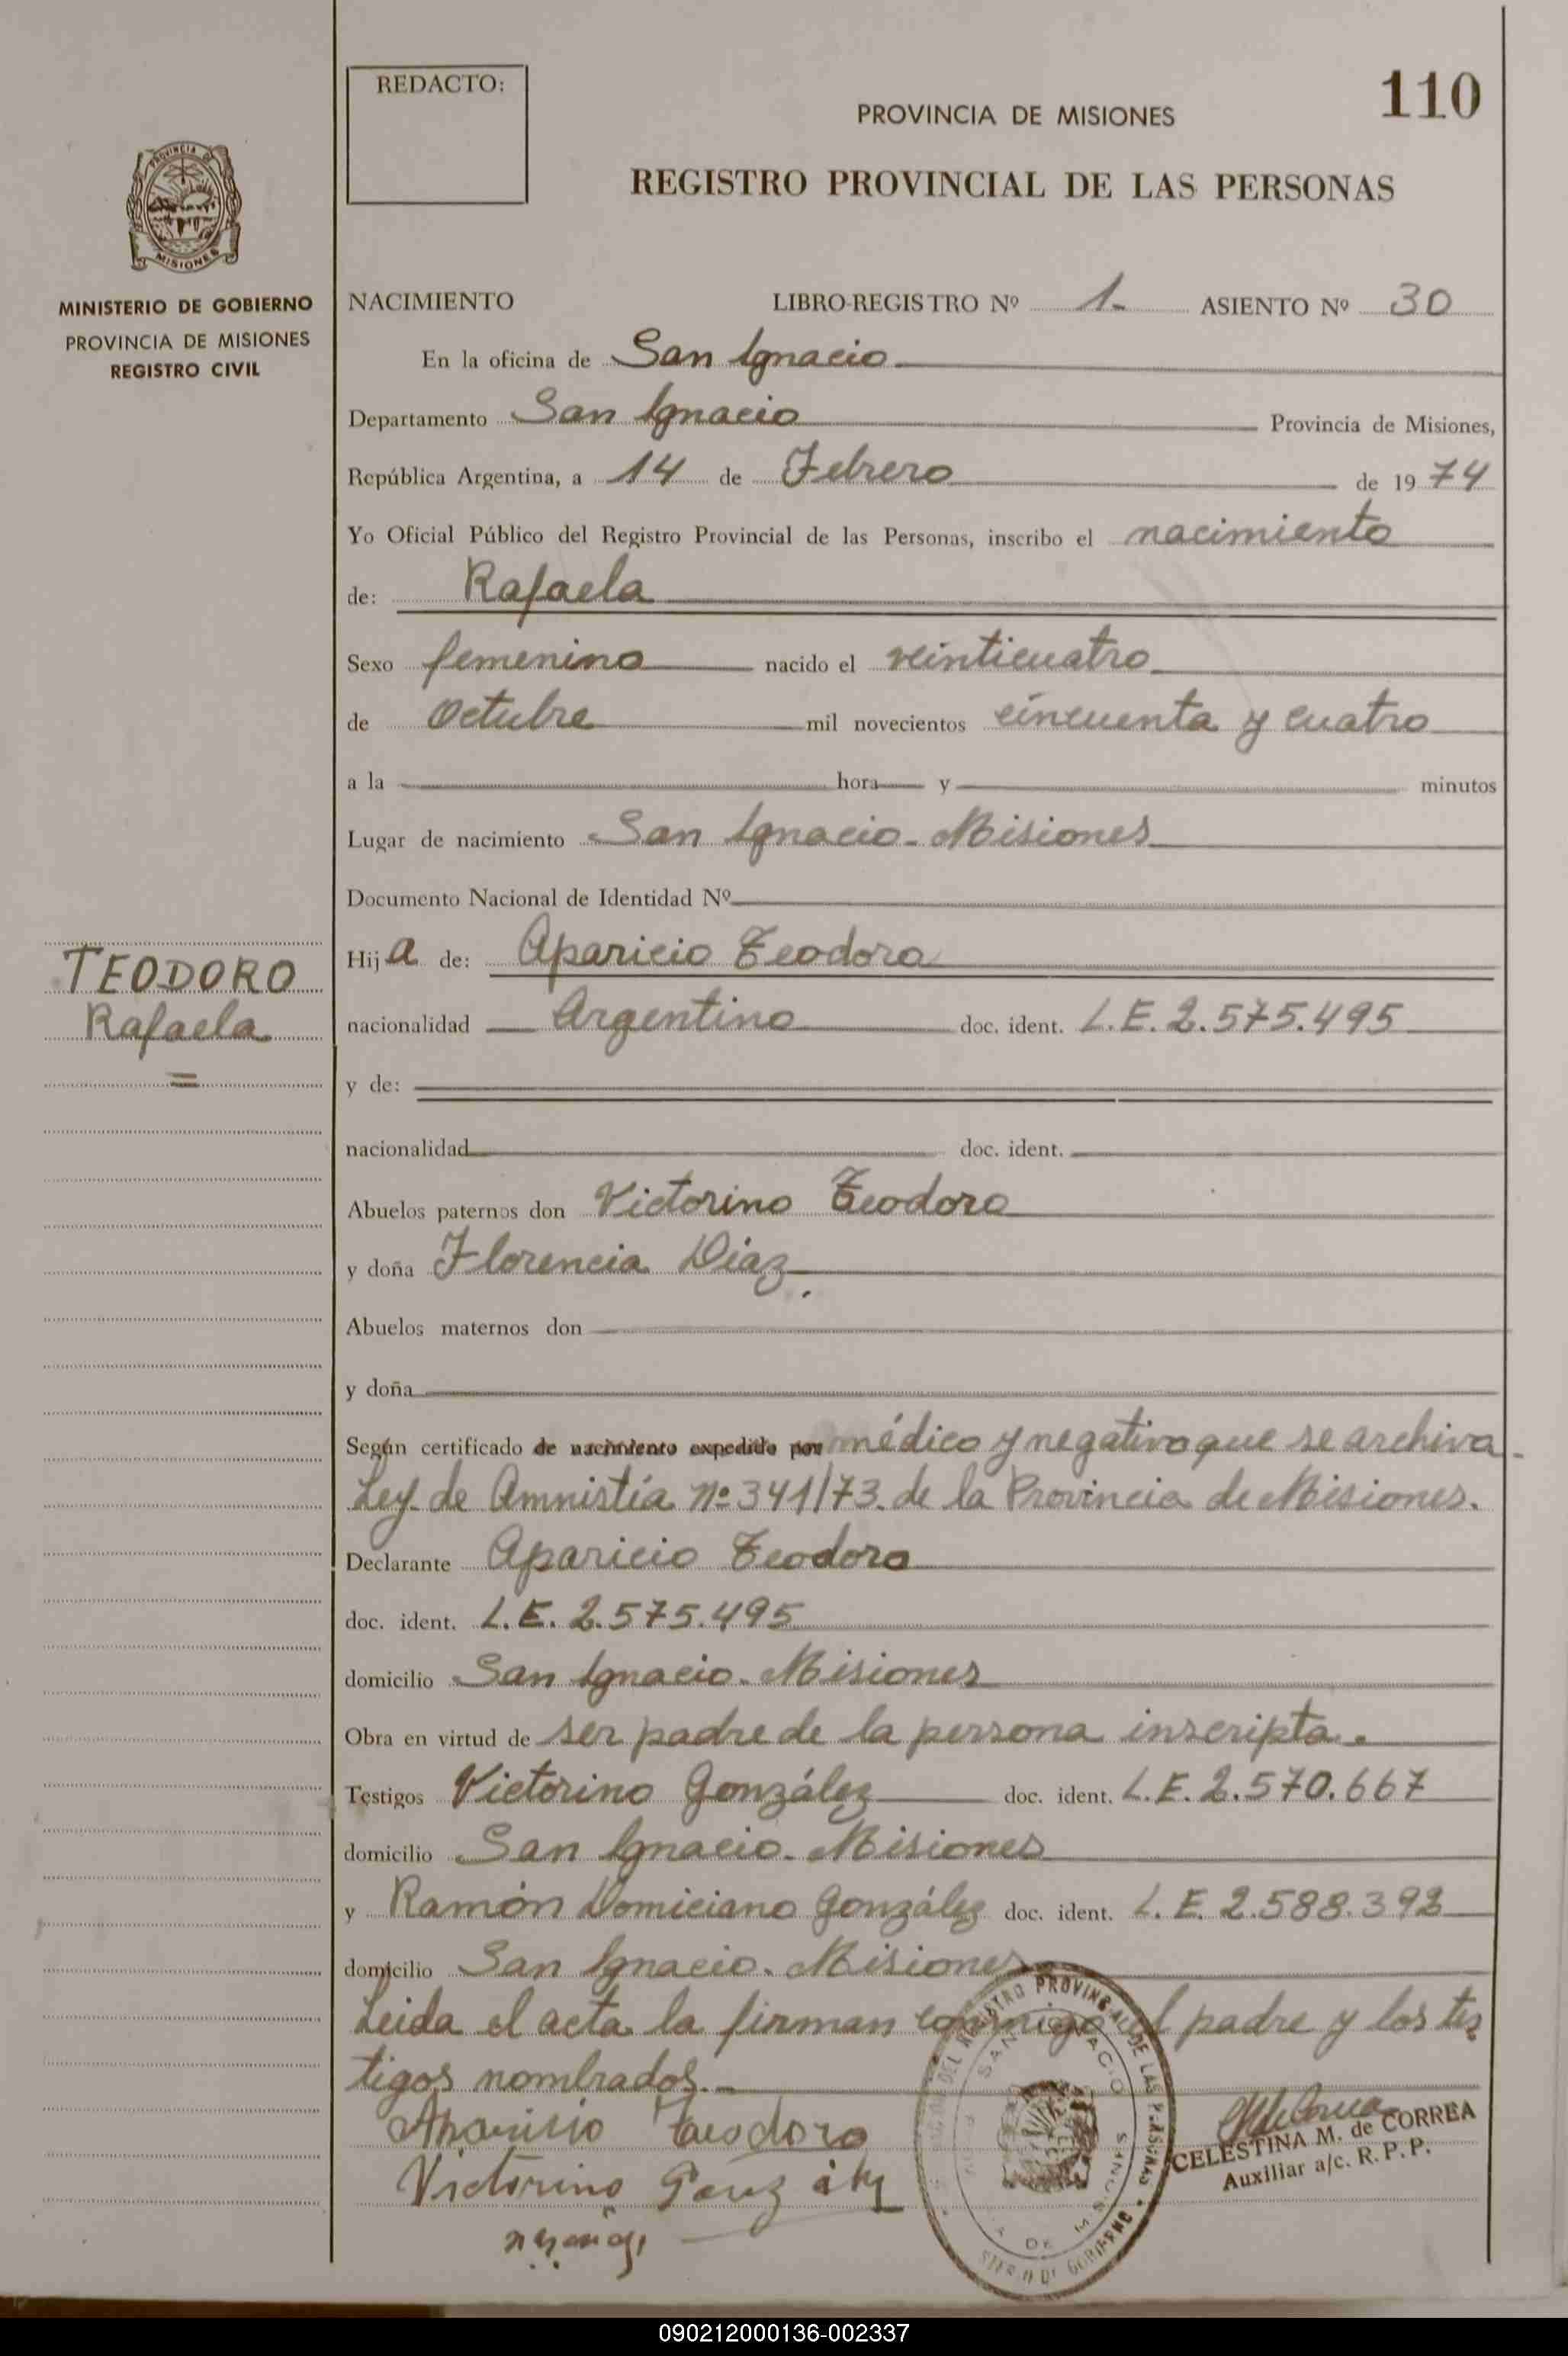 REDACTO:
110
PROVINCIA DE MISIONES
REGISTRO PROVINCIAL DE LAS PERSONAS
PROVINCIA DE
MISIONES
MINISTERIO DE GOBIERNO
PROVINCIA DE MISIONES
REGISTRO CIVIL
NACIMIENTO LIBRO-REGISTRO Nº 1- ASIENTO Nº 30
En la oficina de San Ignacio
Departamento San Ignacio Provincia de Misiones,
República Argentina, a 14 de Febrero de 1974
Yo Oficial Público del Registro Provincial de las Personas, inscribo el nacimiento
de: Rafaela
Sexo femenino nacido el veinticuatro
de Octubre mil novecientos cincuenta y cuatro
a la hora y minutos
Lugar de nacimiento San Ignacio - Misiones
Documento Nacional de Identidad Nº
TEODORO
Rafaela
=
Hija de: Aparicio Teodoro
nacionalidad Argentino doc. ident. L.E. 2.575.495
y de:
nacionalidad doc. ident.
Abuelos paternos don Victorino Teodoro
y doña Florencia Diaz.
Abuelos maternos don
y doña
Según certificado de nacimiento expedido por médico y negativo que se archiva -
Ley de Amnistía nº 341/73. de la Provincia de Misiones.
Declarante Aparicio Teodoro
doc. ident. L.E. 2.575.495
domicilio San Ignacio - Misiones
Obra en virtud de ser padre de la persona inscripta.
Testigos Victorino González doc. ident. L.E. 2.570.667
domicilio San Ignacio - Misiones
y Ramón Domiciano González doc. ident. L.E. 2.588.392
domicilio San Ignacio - Misiones
Leida el acta la firman conmigo el padre y los tes
tigos nombrados.-
Aparicio Teodoro
Victorino
CELESTINA M. de CORREA
Auxiliar a/c. R. P. P.
090212000136-002337